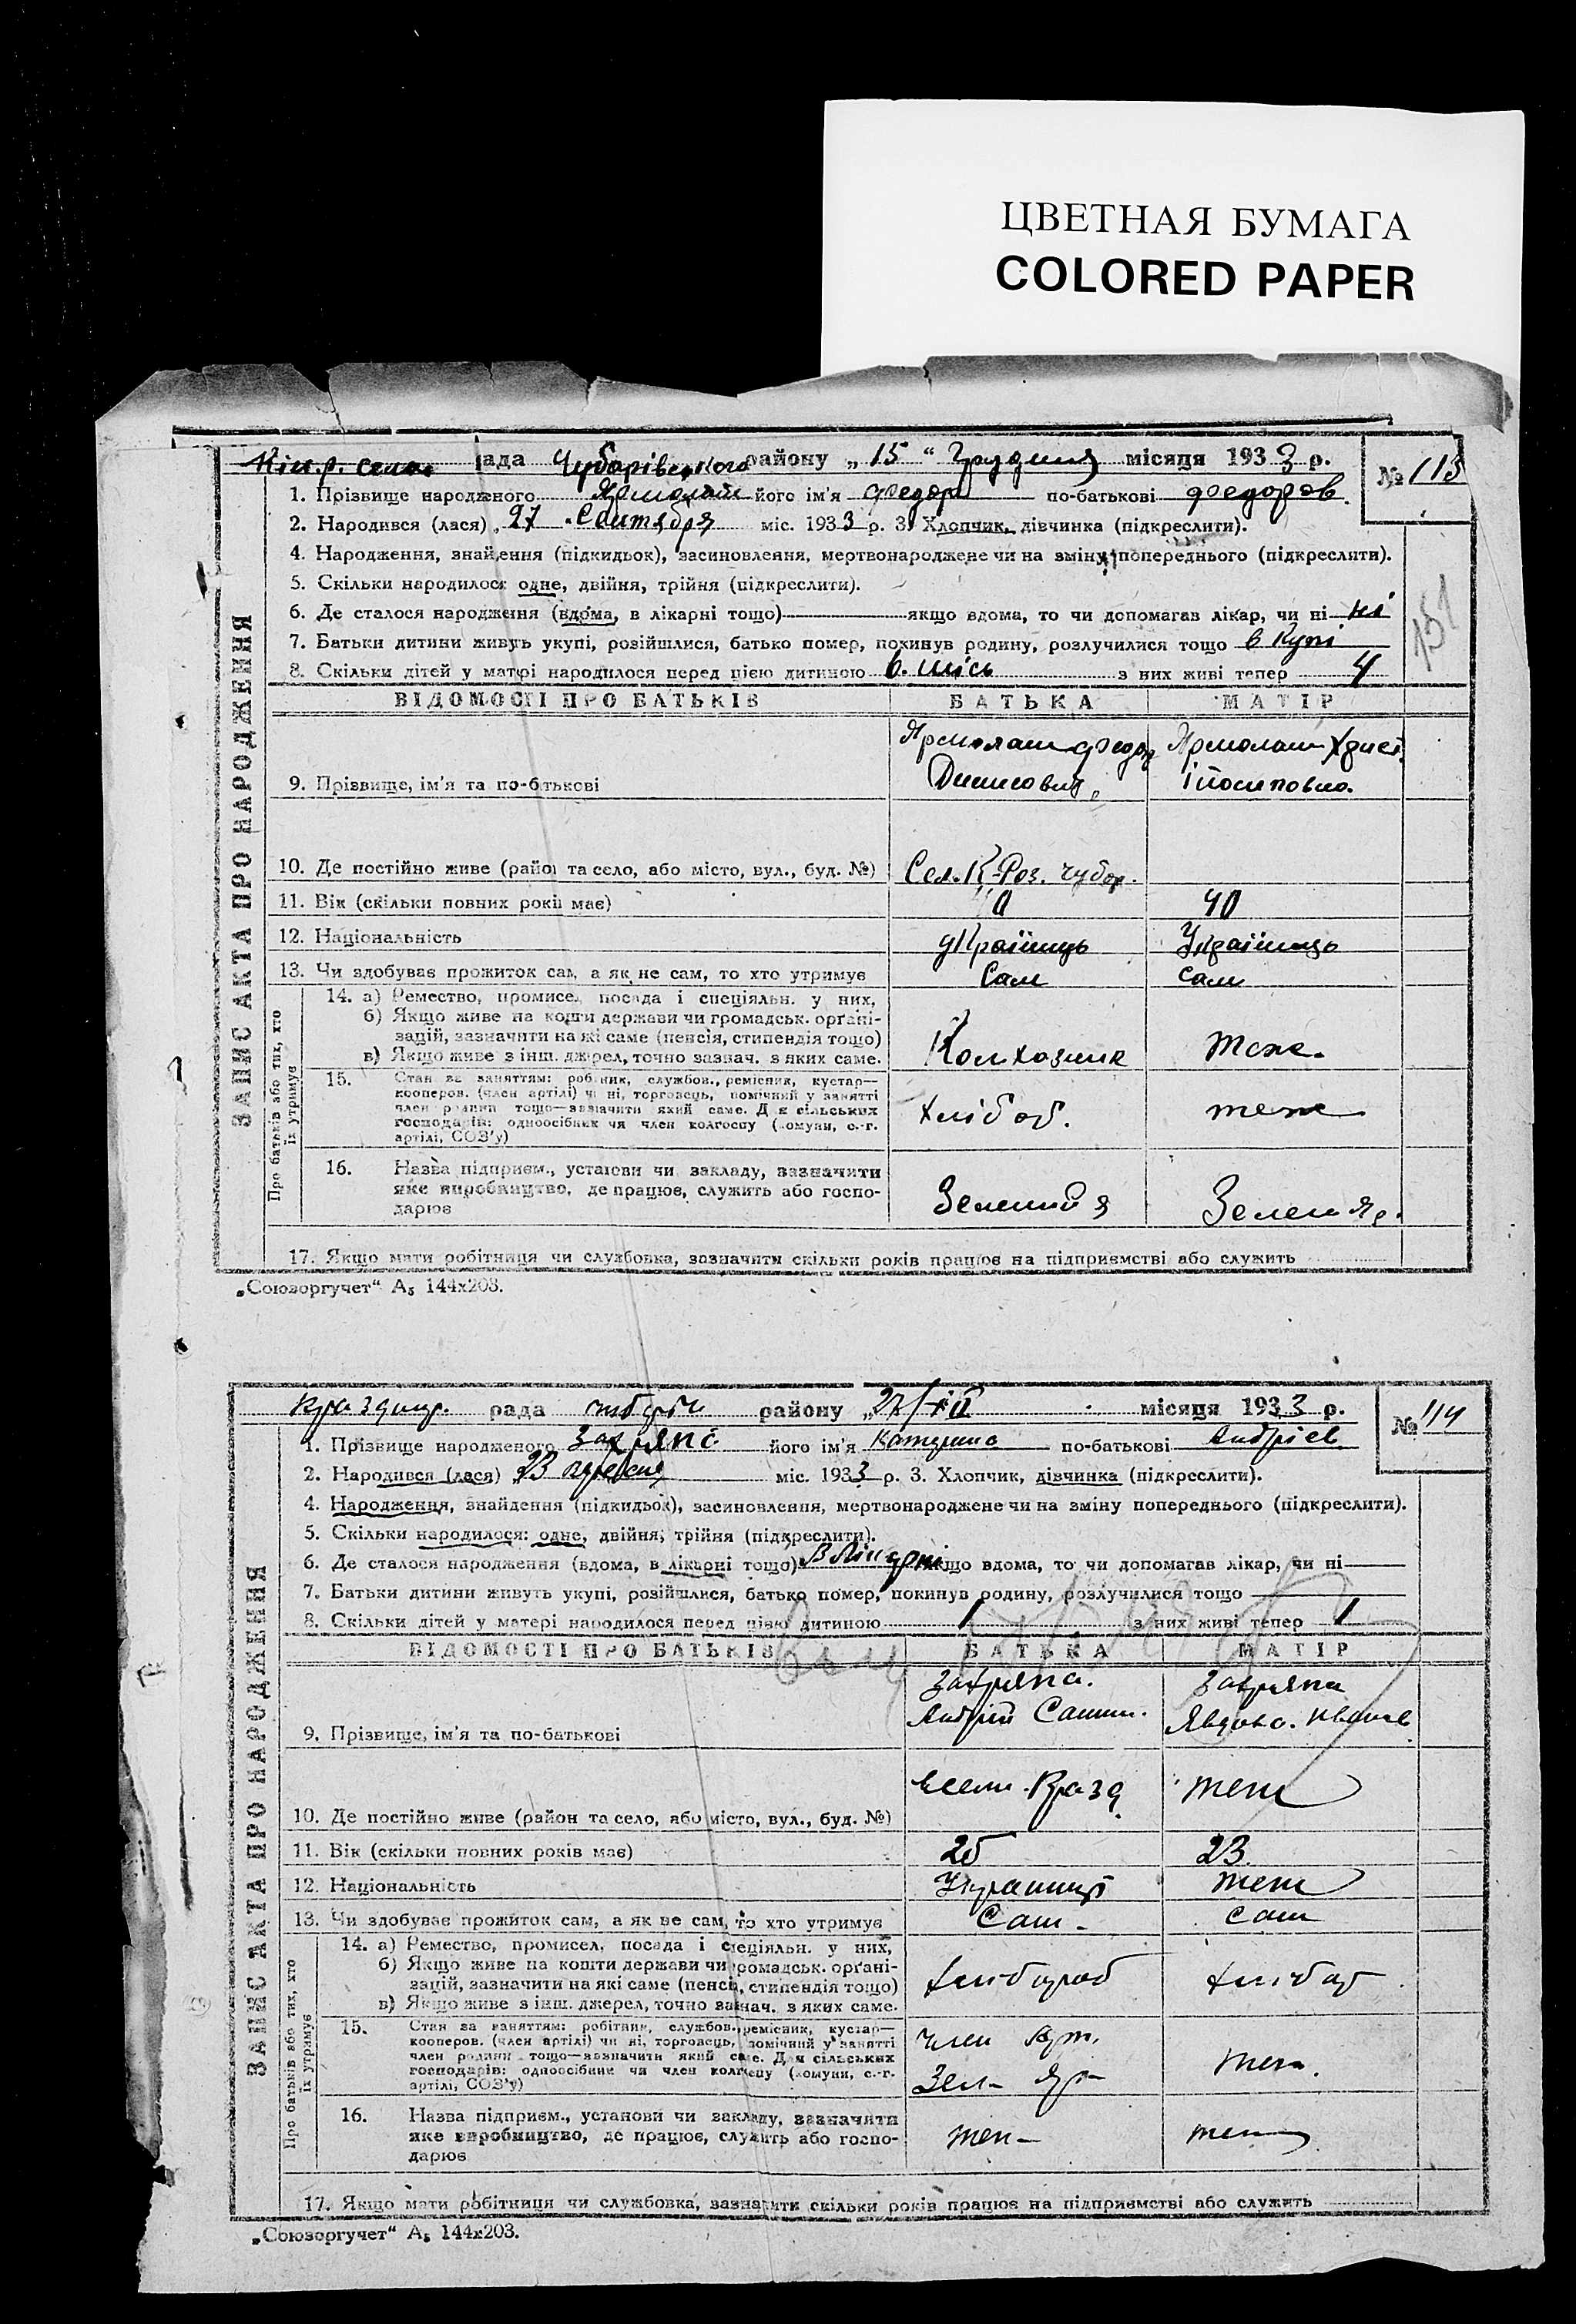 ЦВЕТНАЯ БУМАГА
COLORED PAPER
рада Чубарівського району „15“ Грудня місяця 1933 р.
№ 115
1. Прізвище народженого Ярмолаш його ім'я Федор по-батькові Федоров.
2. Народився (лася) „27 „Сентября міс. 1933 р. 3. Хлопчик, дівчинка (підкреслити).
4. Народження, знайдення (підкидьок), засиновлення, мертвонароджене чи на зміну попереднього (підкреслити).
5. Скільки народилося: одне, двійня, трійня (підкреслити).
6. Де сталося народження (вдома, в лікарні тощо) якщо вдома, то чи допомагав лікар, чи ні ні
7. Батьки дитини живуть укупі, розійшлися, батько помер, покинув родину, розлучилися тощо в купі
8. Скільки дітей у матері народилося перед цією дитиною 6. шісь з них живі тепер 4
151
ВІДОМОСТІ ПРО БАТЬКІВ БАТЬКА МАТІР
Ярмолаш Федор Ярмолаш Христ.
9. Прізвище, ім'я та по-батькові Денисович Іосиповна.
10. Де постійно живе (район та село, або місто, вул., буд. №) Сел. К-Роз. Чубар.
11. Вік (скільки повних років має) 40 40
12. Національність Українець Українець
13. Чи здобуває прожиток сам, а як не сам, то хто утримує Сам сам
14. а) Ремество, промисел, посада і спеціяльн. у них,
б) Якщо живе на кошти держави чи громадськ. орґані-
зацій, зазначити на які саме (пенсія, стипендія тощо)
в) Якщо живе з інш. джерел, точно зазнач. з яких саме.
Колхозник теж.
15. Стан за заняттям: робітник, службов., ремісник, кустар—
кооперов. (член артілі) чи ні, торговець, помічний у занятті
член родини тощо—зазначити який саме. Для сільських
господарів: одноосібник чи член колгоспу (комуни, с.-г.
артілі, СОЗ'у)
Хлібоб. теж
16. Назва підприєм., установи чи закладу, зазначити
яке виробництво, де працює, служить або госпо-
дарює
Зелений я Зелен яр.
17. Якщо мати робітниця чи службовка, зазначити скільки років працює на підприємстві або служить
ЗАПИС АКТА ПРО НАРОДЖЕННЯ
Про батьків або тих, хто
їх утримує
„Союзоргучет“ А₅ 144х203.
рада району „27/XII місяця 1933 р.
№ 114
1. Прізвище народженого його ім'я Катерина по-батькові Андріев.
2. Народився (лася) 23 вересня міс. 1933 р. 3. Хлопчик, дівчинка (підкреслити).
4. Народження, знайдення (підкидьок), засиновлення, мертвонароджене чи на зміну попереднього (підкреслити).
5. Скільки народилося: одне, двійня, трійня (підкреслити).
6. Де сталося народження (вдома, в лікарні тощо) В лікарні якщо вдома, то чи допомагав лікар, чи ні
7. Батьки дитини живуть укупі, розійшлися, батько помер, покинув родину, розлучилися тощо
8. Скільки дітей у матері народилося перед цією дитиною 1 з них живі тепер 1
ВІДОМОСТІ ПРО БАТЬКІВ БАТЬКА МАТІР
9. Прізвище, ім'я та по-батькові Андрій
10. Де постійно живе (район та село, або місто, вул., буд. №) теж
11. Вік (скільки повних років має) 25 23
12. Національність Українець теж
13. Чи здобуває прожиток сам, а як не сам, то хто утримує Сам сам
14. а) Ремество, промисел, посада і спеціяльн. у них,
б) Якщо живе на кошти держави чи громадськ. орґані-
зацій, зазначити на які саме (пенсія, стипендія тощо)
в) Якщо живе з інш. джерел, точно зазнач. з яких саме.
Хлібороб Хлібор
15. Стан за заняттям: робітник, службов., ремісник, кустар—
кооперов. (член артілі) чи ні, торговець, помічний у занятті
член родини тощо—зазначити який саме. Для сільських
господарів: одноосібник чи член колгоспу (комуни, с.-г.
артілі, СОЗ'у)
член Арт.
Зел. Яр теж.
16. Назва підприєм., установи чи закладу, зазначити
яке виробництво, де працює, служить або госпо-
дарює
теж теж
17. Якщо мати робітниця чи службовка, зазначити скільки років працює на підприємстві або служить
ЗАПИС АКТА ПРО НАРОДЖЕННЯ
Про батьків або тих, хто
їх утримує
„Союзоргучет“ А₅ 144х203.